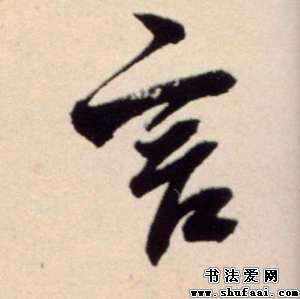 言
书法爱网
www.shufaai.com